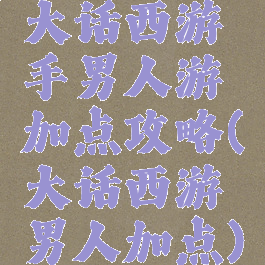 大话西游
手男人游
加点攻略(
大话西游
男人加点)